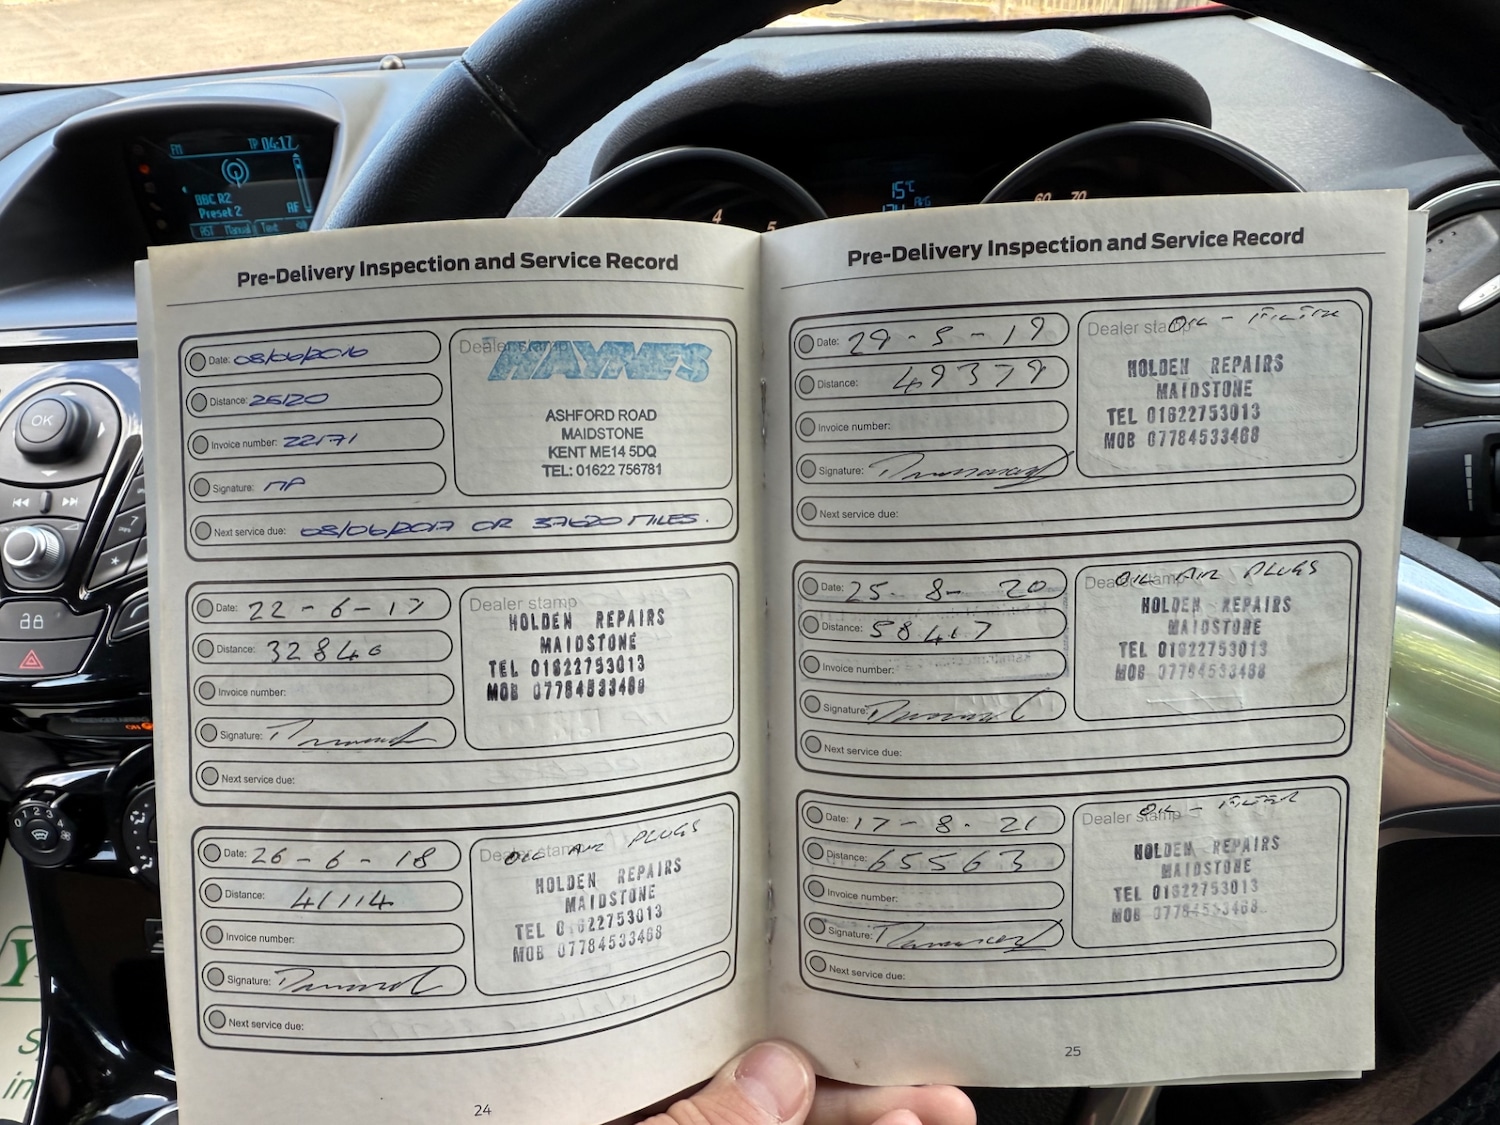 FM TP 04:17
BBC R2
Preset 2 AF
AST Manual Text
OK
15°C
AVG
4 5
60 70
Pre-Delivery Inspection and Service Record
Date: 08/06/2016
Distance: 25120
Invoice number: 22171
Signature: MP
Next service due: 08/06/2017 OR 37620 MILES.
Dealer stamp
HAYNES
ASHFORD ROAD
MAIDSTONE
KENT ME14 5DQ
TEL: 01622 756781
Date: 22-6-17
Distance: 32840
Invoice number:
Signature:
Next service due:
Dealer stamp
HOLDEN REPAIRS
MAIDSTONE
TEL 01622753013
MOB 07784533468
Date: 26-6-18
Distance: 41114
Invoice number:
Signature:
Next service due:
Dealer stamp
OIL AIR PLUGS
HOLDEN REPAIRS
MAIDSTONE
TEL 01622753013
MOB 07784533468
24
Pre-Delivery Inspection and Service Record
Date: 29-5-19
Distance: 49379
Invoice number:
Signature:
Next service due:
Dealer stamp
OIL - FILTER
HOLDEN REPAIRS
MAIDSTONE
TEL 01622753013
MOB 07784533468
Date: 25-8-20
Distance: 58417
Invoice number:
Signature:
Next service due:
Dealer stamp
OIL AIR PLUGS
HOLDEN REPAIRS
MAIDSTONE
TEL 01622753013
MOB 07784533468
Date: 17-8-21
Distance: 65563
Invoice number:
Signature:
Next service due:
Dealer stamp
OIL - FILTER
HOLDEN REPAIRS
MAIDSTONE
TEL 01622753013
MOB 07784533468
25